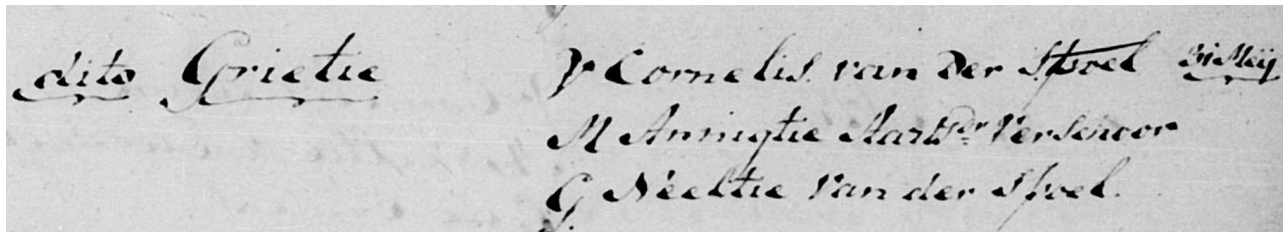 dito Grietie V Cornelis van der Spoel 31 Meij
M Annigtie Aartsdr Verschoor
G Neeltie van der Spoel.